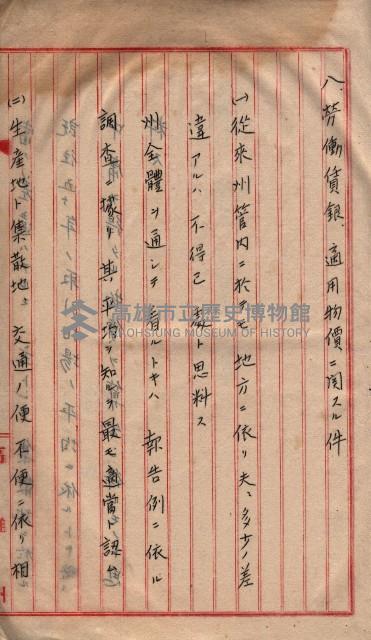 八、勞働賃銀、適用物價ニ関スル件
(一)從来州管内ニ於テモ地方ニ依リ夫々多少ノ差
違アルハ不得已義ト思料ス
州全體ヲ通シテ見ルトキハ報告例ニ依ル
調査ニ據リ其平均ヲ知ルヲ最モ適當ト認ム
(二)生産地ト集散地ト交通ノ便不便ニ依リ相
高雄市立歷史博物館
KAOHSIUNG MUSEUM OF HISTORY
高雄州